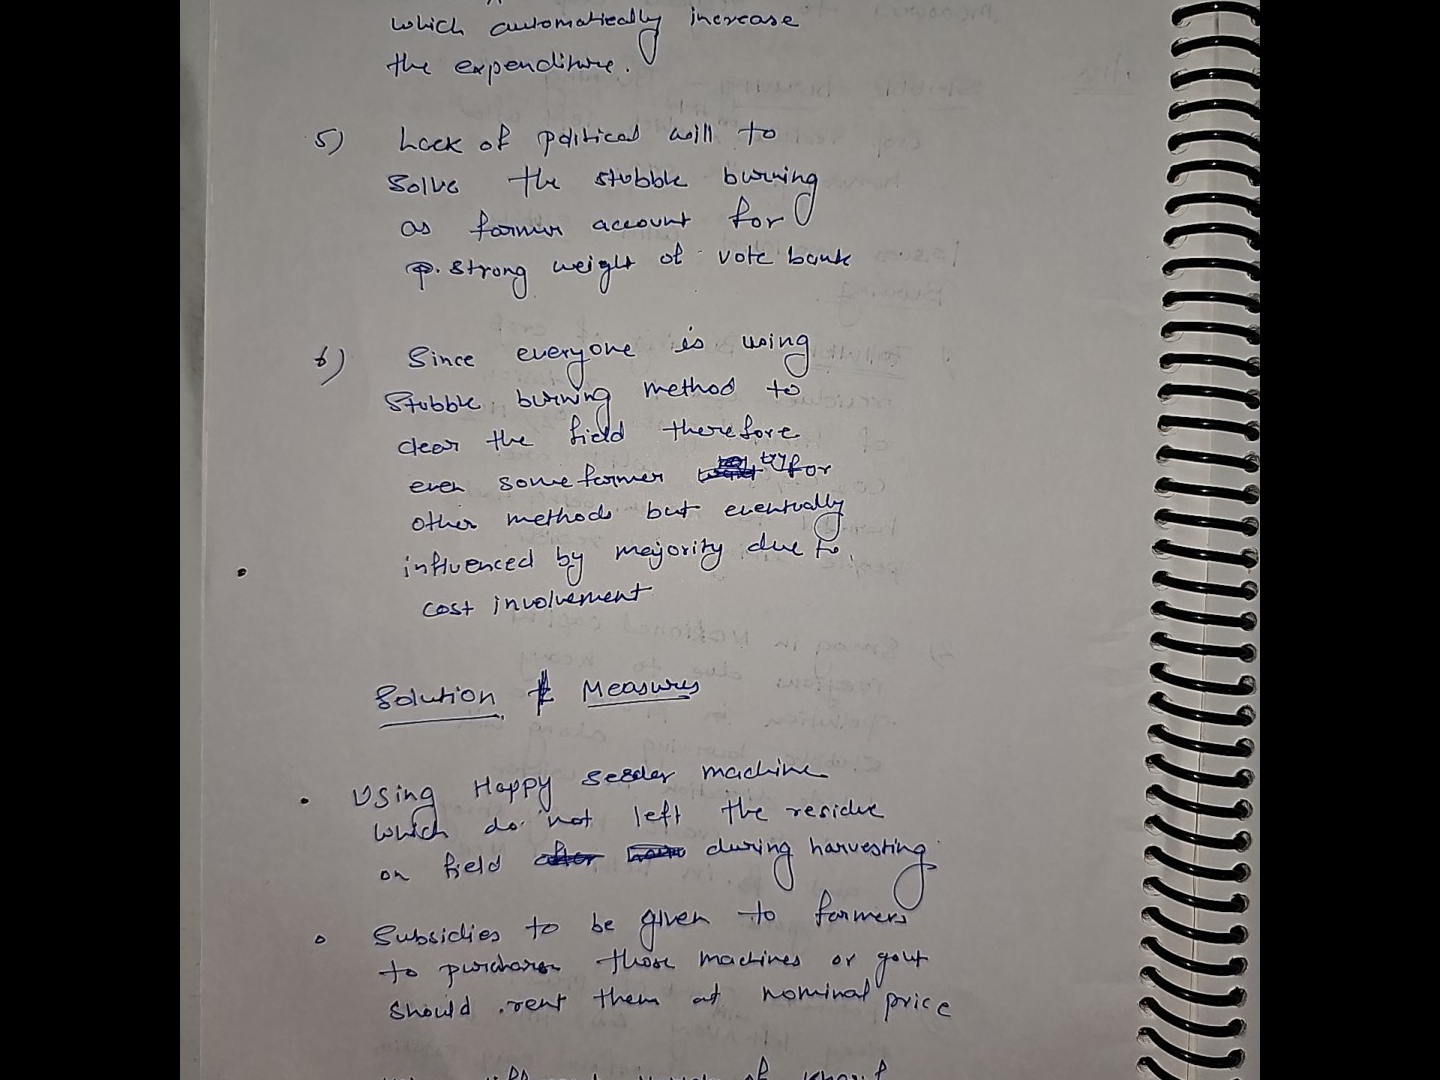 which automatically increase
the expenditure.
5) Lack of political will to
solve the stubble burning
as farmer account for
strong weight of vote bank
6) Since everyone is using
stubble burning method to
clear the field therefore
even some farmer try for
other methods but eventually
influenced by majority due to
cost involvement
Solution & Measures
• Using Happy seeder machine
which do not left the residue
on field during harvesting
• Subsidies to be given to farmers
to purchase those machines or govt
should rent them at nominal price
of kharif